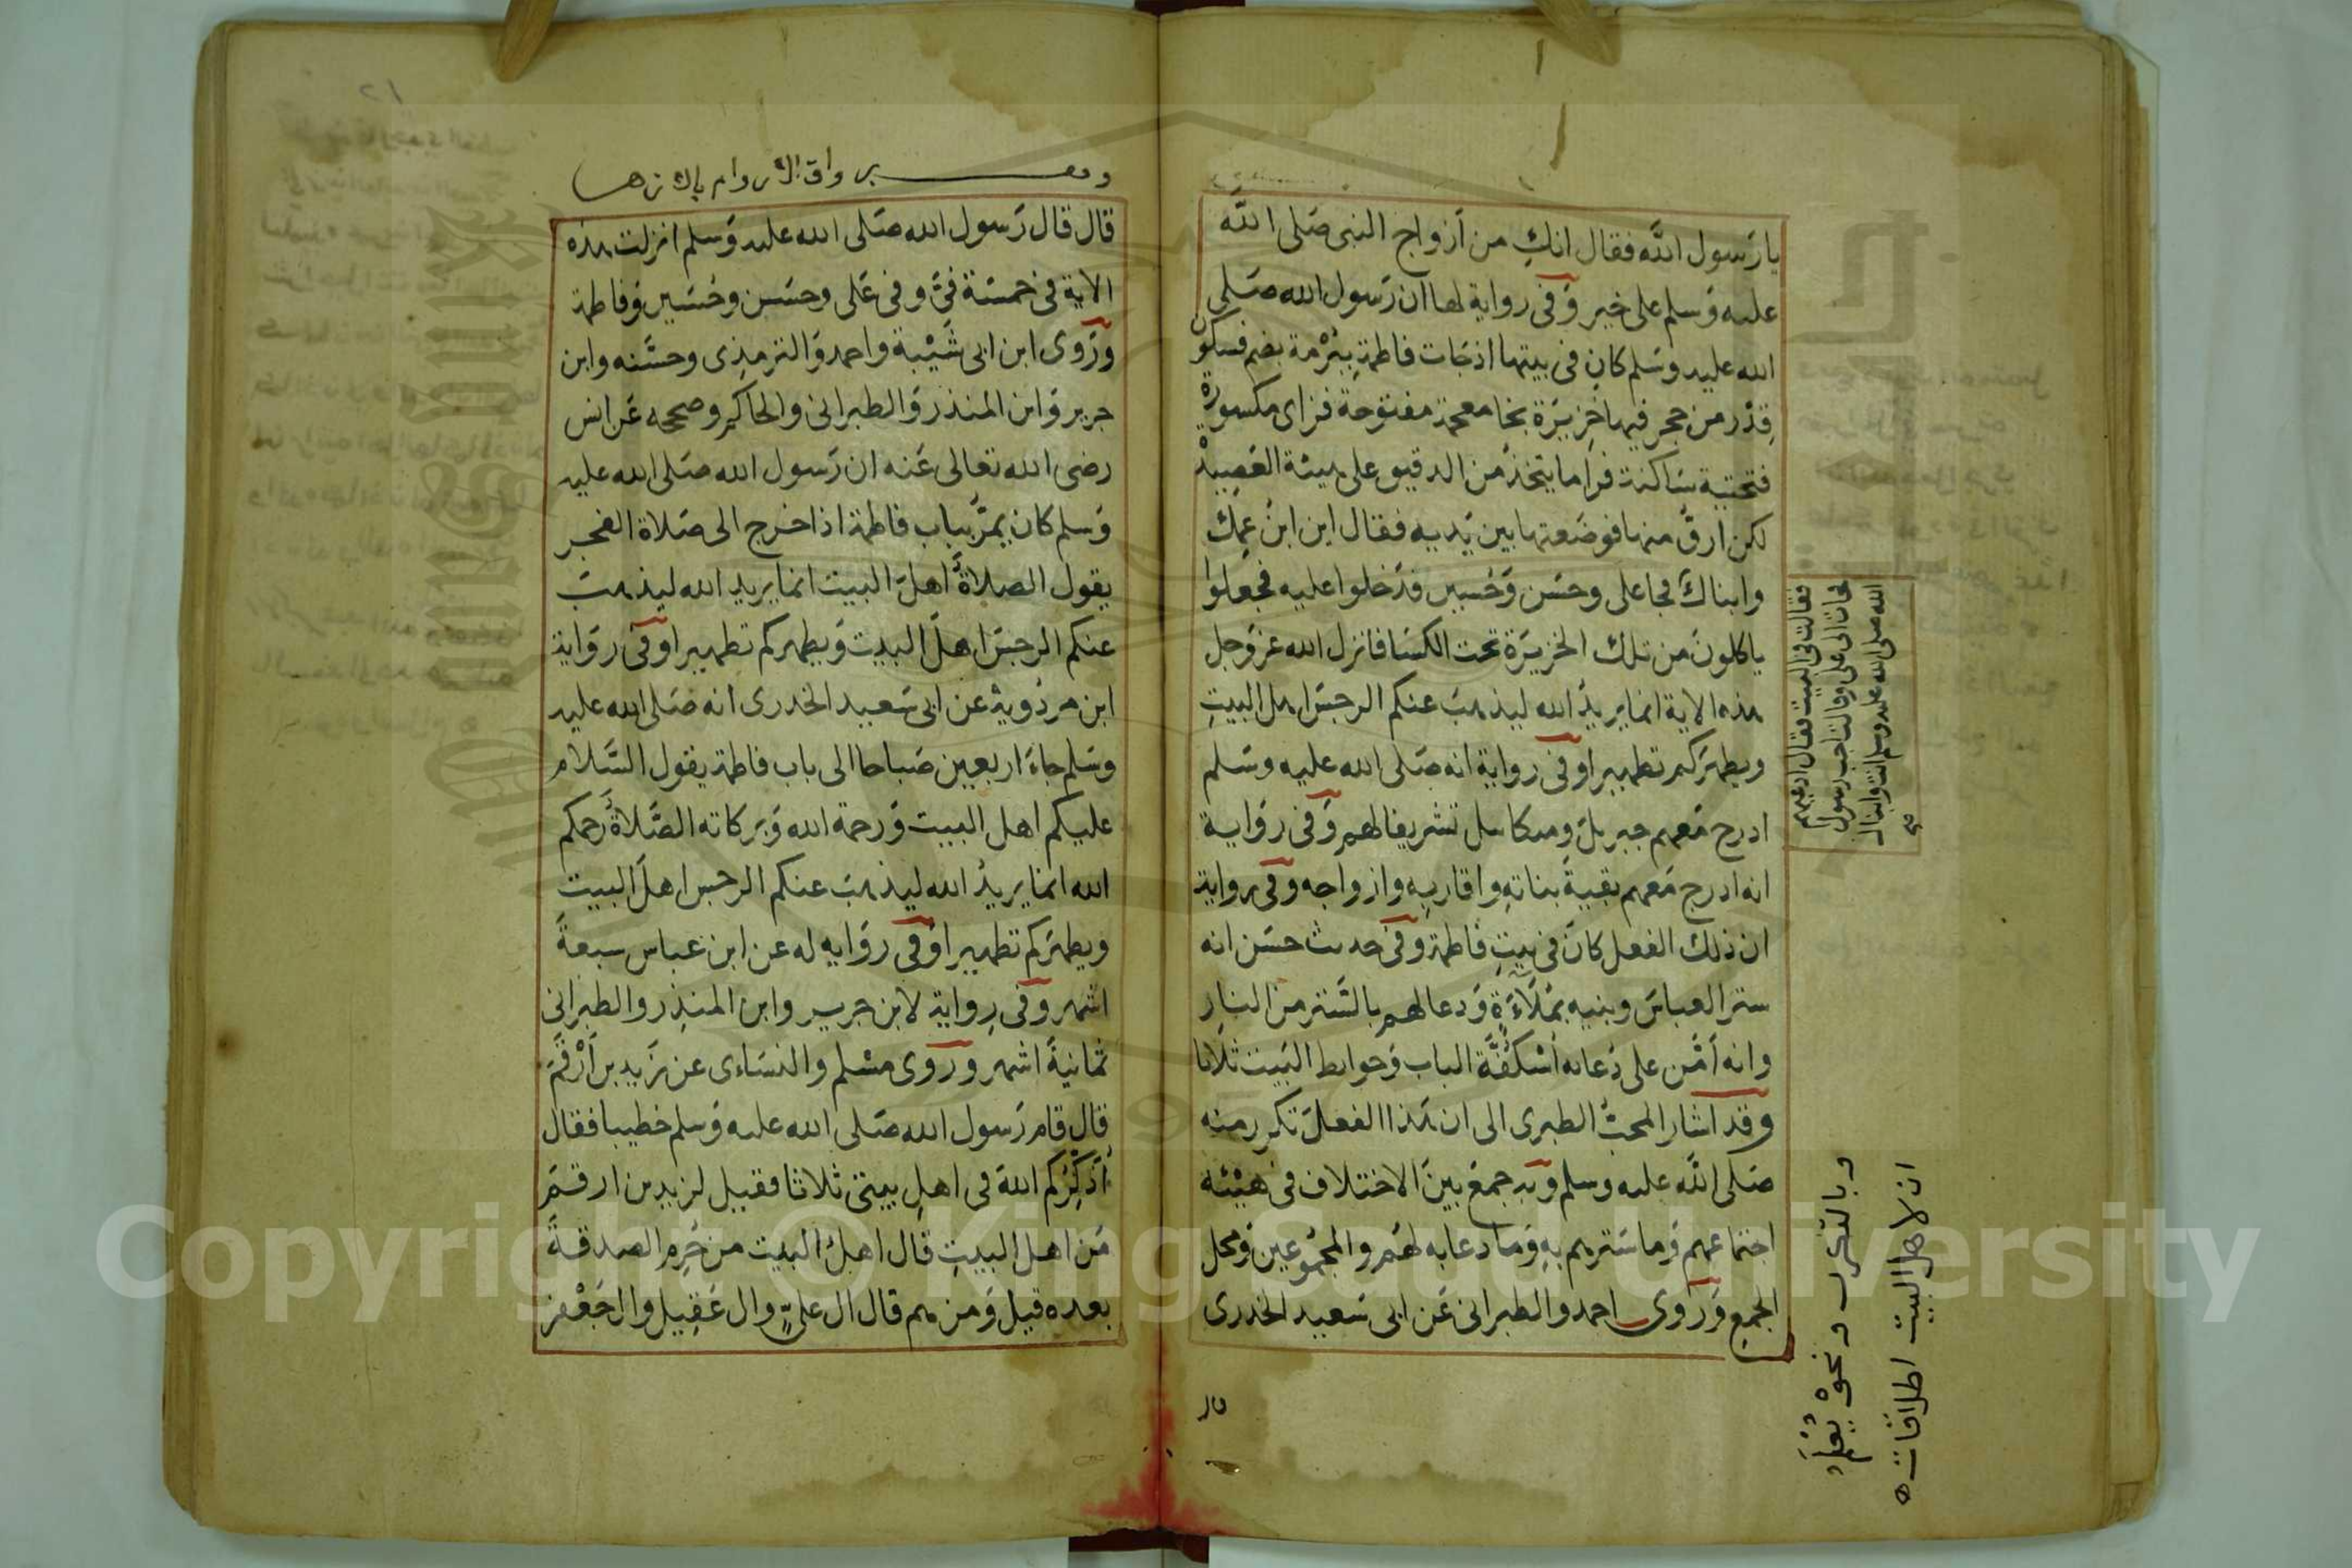 يا رَسول الله فقال انكِ من اَزواج النبى صَلى الله
عليه وَسلم على خير وَفى رواية لها ان رَسول الله صَلى
الله عليه وسَلم كان فى بيتها اذ جَات فاطمة ببُرْمة بضم فسكون
قِدْر من حجر فيها خزِيرَة بخا معجمة مفتوحة فزاى مكسورة
فتحتية سَاكنة فرا ما يتخذ من الدقيق على هيئة العَصِيدة
لكن ارقّ منها فوضَعتها بين يَديه فقال اين ابنُ عمِك
وابناكَ فجا على وحسَن وَحُسين فدَخلوا عليه فجعلوا
ياكلونَ من تلك الخزيرَة تحت الكسَا فانزل الله عز وَجل
هذه الاية انما يريدُ الله ليذهبَ عنكم الرجسَ اهل البيتِ
ويطهرَكم تطهيرا وفى رواية انه صَلى الله عليه وسَلم
ادرج مَعهم جبريلَ وميكاييل تشريفا لهم وَفى رِوَاية
انه ادرج مَعهم بقيةَ بناتهِ واقاربهِ وازواجه وفى رواية
ان ذلك الفعل كانَ فى بيتِ فاطمة وفى حديث حسَن انه
ستر العباسَ وبنيه بمُلَاءَةٍ وَدعا لهم بالسَّتر من النارِ
وانه اَمَّن على دُعائه اُسْكفَّةُ الباب وَحوايط البَيت ثلاثا
وقد اشار المحبُّ الطبرى الى ان هَذا الفعلَ تكرر منه
صَلى اللَّه عليه وسلم وَبه جمَعَ بينَ الاختلاف فى هَيْئة
اجتماعهم وَما سَترهم بهِ وَما دعا به لهَم والمجمُوعين وَمحل
الجمع وَرَوى احمد والطبرانى عَن ابى سَعيد الخدرى
فقالت فى البيت فقال ادعيهم
فجات الى على وقالت اجب رسول
الله صلى الله عليه وسلم انت وابناك
صح
وبالتقرب ونحوْ يُعْلم
ان لاهل البيت اطلاقات
قال
قال قال رَسول الله صَلى الله عليه وَسلم انزلت هذه
الاية فى خمسَة فىَّ وفى عَلى وحسَن وحُسَين وَفاطمة
ورَوى ابن ابى شَيْبة واحمد وَالترمذِى وحسَّنه وابن
جرير وَابن المنذر وَالطبرانى والحاكم وصححه عَن انس
رضى الله تعالى عَنه ان رَسول الله صَلى الله عليه
وَسلم كان يمرُّ بباب فاطمة اذا خرج الى صَلاة الفجر
يقول الصلاةَ اهلَ البيت انما يريد الله ليذهبَ
عنكم الرجسَ اهلَ البيت وَيطهركم تطهيرا وَفى رِوَاية
ابن مردُويهْ عن ابى سَعيد الخدرى انه صَلى الله عليه
وسَلم جاءَ اربعين صَباحا الى باب فاطمة يقول السَّلام
عليكم اهل البيت وَرحمة الله وَبَركاته الصَّلاةَ رَحمكم
الله انما يريدُ الله ليذهبَ عنكم الرجس اهلَ البيت
ويطهرَكم تطهيرا وَفى رِوَايه له عن ابن عباس سبعةَ
اشهر وفى رِواية لابن جرير وابن المنذِر والطبرانى
ثمانيةَ اشهر ورَوى مسْلم والنسَاءى عن زَيد بن اَرْقمَ
قال قام رَسول الله صَلى الله عليه وَسلم خطيبا فقال
اُذَكِّرُكم اللهَ فى اهلِ بيتى ثلاثا فقيل لزيد بن ارقمَ
مَن اهل البيتِ قال اهلُ البيت من حُرِم الصدقةَ
بعده قيل وَمن هم قال ال علىٍّ وال عَقِيل وال جَعْفر